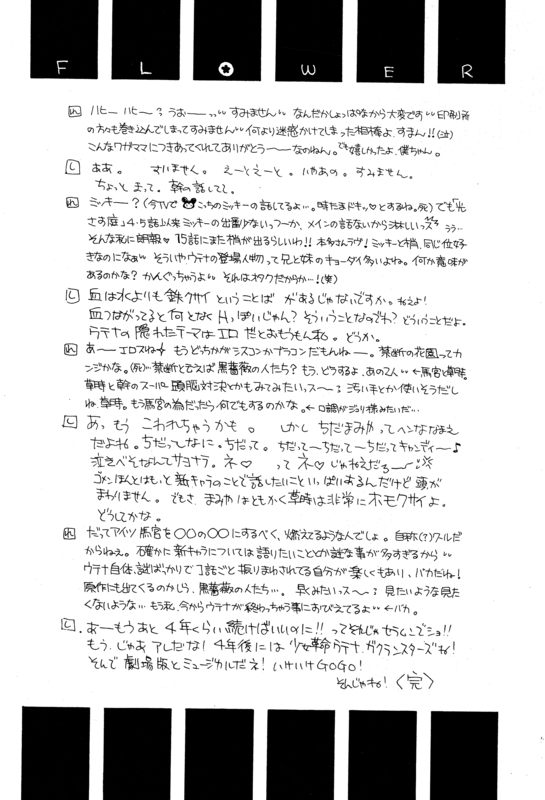 FLOWER
れ ハヒー ハヒー？うおーーっっ〃すみません〃 なんだかしょっぱなから大変です〃印刷所
の方々も巻き込んでしまってすみません〃何より迷惑かけてしまった相棒よ、すまん!!(泣)
こんなワガママにつきあってくれてありがとう〜〜なのねん。でも嬉しかったよ、僕ちゃん。
し ああ。 すいません。えーとえーと。いやあの。すみません。
ちょっと まって。幹の話してて。
れ ミッキー？(今TVで こっちのミッキーの話してるよ…。時たまドキッ♡とするね。死)でも「光
さす庭」4・5話以来ミッキーの出番少ないっつーか、メインの話ないから淋しいっスうう…
そんな私に朗報♡ 15話にまた梢が出るらしいわ!! 本多さんラブ！ミッキーと梢、同じ位好
きなのになぁ〃 そういやウテナの登場人物って兄と妹のキョーダイ多いよね。何か意味が
あるのかな？かんぐっちゃうよ〃 それはオタクだからか…！(笑)
し 血は水よりも鉄クサイ ということば があるじゃないですか。ねえよ！
血つながってると何となくHっぽいじゃん？そういうことなのでわ？どういうことだよ。
ウテナの隠れたテーマはエロ だとおもうもん私。どうか。
れ あー エロスね もうどっちかがシスコンかブラコンだもんねー。禁断の花園ってカ
ンジかな。(死) 禁断と言えば黒薔薇の人たち？もう、どうするよ、あの2人〃←馬宮と草時。
草時と幹のスーパー頭脳対決とかもみてみたいっスー；汚い手とか使いそうだし
ね、草時。もう馬宮の為だったら何でもするのかな。←口調がジュリ様みたいだ…
し あっ もう こわれちゃうかも。 しかし ちだまみやってヘンななまえ
だよね。ちだっ〜なに。ちだって。ちだって〜ちだって〜ちだってキャンディー〜♪
泣きべそなんてサヨナラ。ネ♡ って ネ♡ じゃねえだろー〜
ゴメンほんとはもっと新キャラのことで話したいこといっぱいあるんだけど 頭が
まわりません。 でもさ、まみやはともかく草時は非常にホモクサイよ。
どうしてかな。
れ だってアイツ馬宮を〇〇の〇〇にするべく、燃えてるようなんでしょ。自称(?)クールだ
からねぇ。確かに新キャラについては語りたいこととか謎な事が多すぎるから〃
ウテナ自体、謎ばっかりで1話ごと振りまわされてる自分が楽しくもあり、バカだね！
原作にも出てくるのかしら、黒薔薇の人たち…。 早くみたいっスー；見たいような見た
くないような… もう私、今からウテナが終わっちゃう事におびえてるよ〃←バカ。
し あーもうあと 4年くらい続けばいいのに!! ってそれじゃセラムンでショ!!
もう、じゃあ アレだな！4年後には 少女革命ウテナ、ガクランスターズね！
そんで 劇場版とミュージカルだネ！いけいけGOGO！
そんじゃね！〈完〉